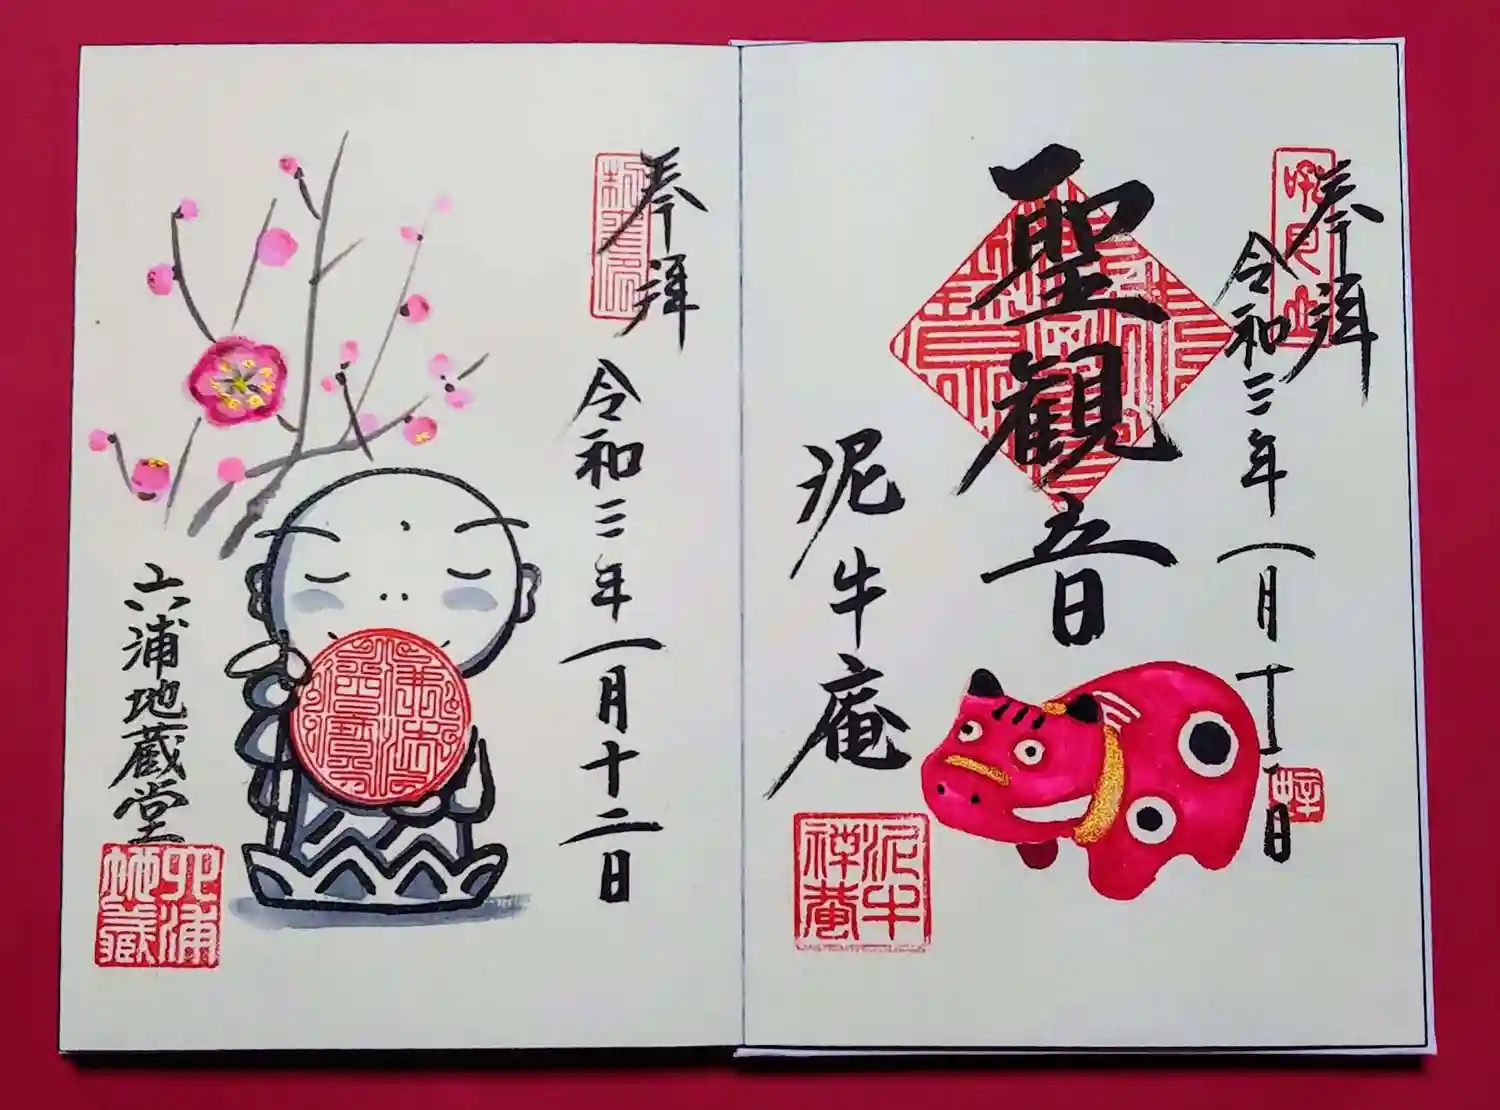 奉拝
令和三年一月十二日
聖観音
泥牛庵
泥牛
禪菴
奉拝
令和三年一月十二日
六浦地蔵堂
六浦
地藏